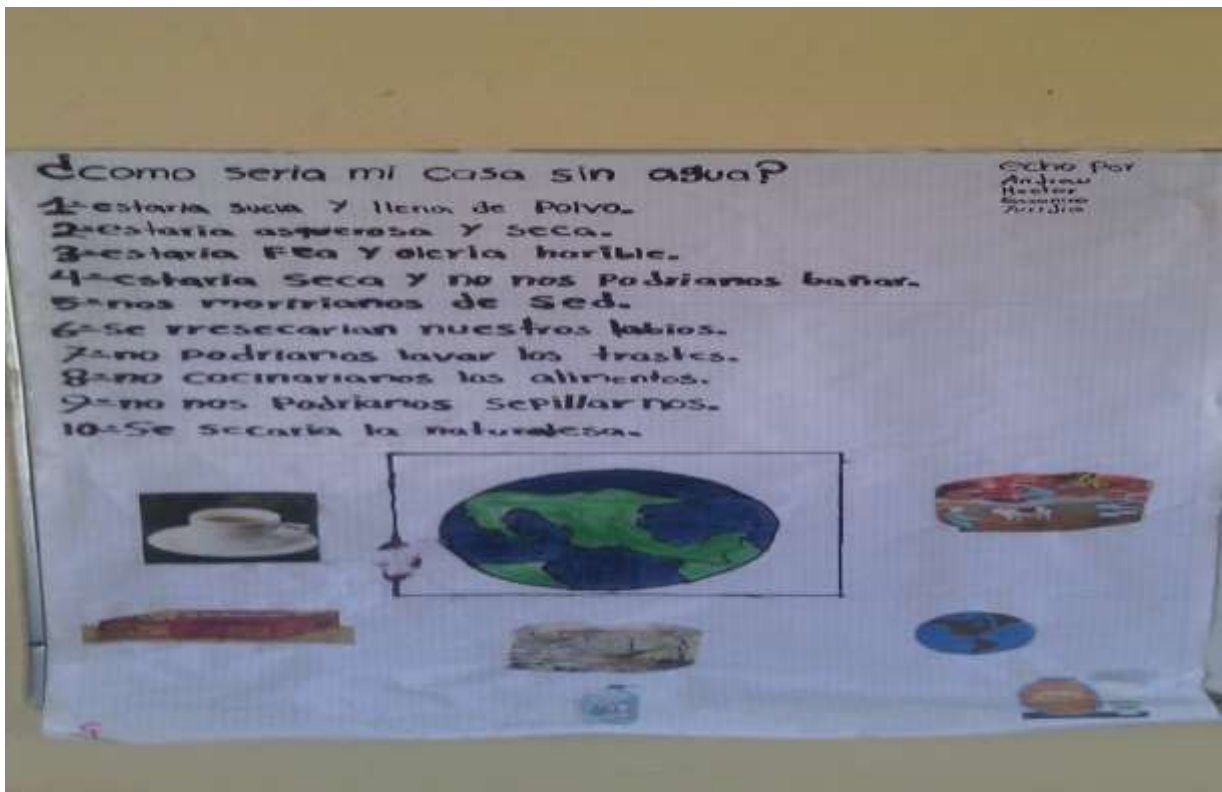 ¿como seria mi casa sin agua?
echo por
Andrew
Hector
Yuridia
1-estaria sucia y llena de polvo.
2-estaria asquerosa y seca.
3-estaria Fea y oleria horible.
4-estaria seca y no nos podrianos bañar.
5-nos moririanos de sed.
6-Se rresecarian nuestros labios.
7-no podrianos lavar los trastes.
8-no cocinarianos los alimentos.
9-no nos podrianos sepillarnos.
10-Se secaria la naturalesa.